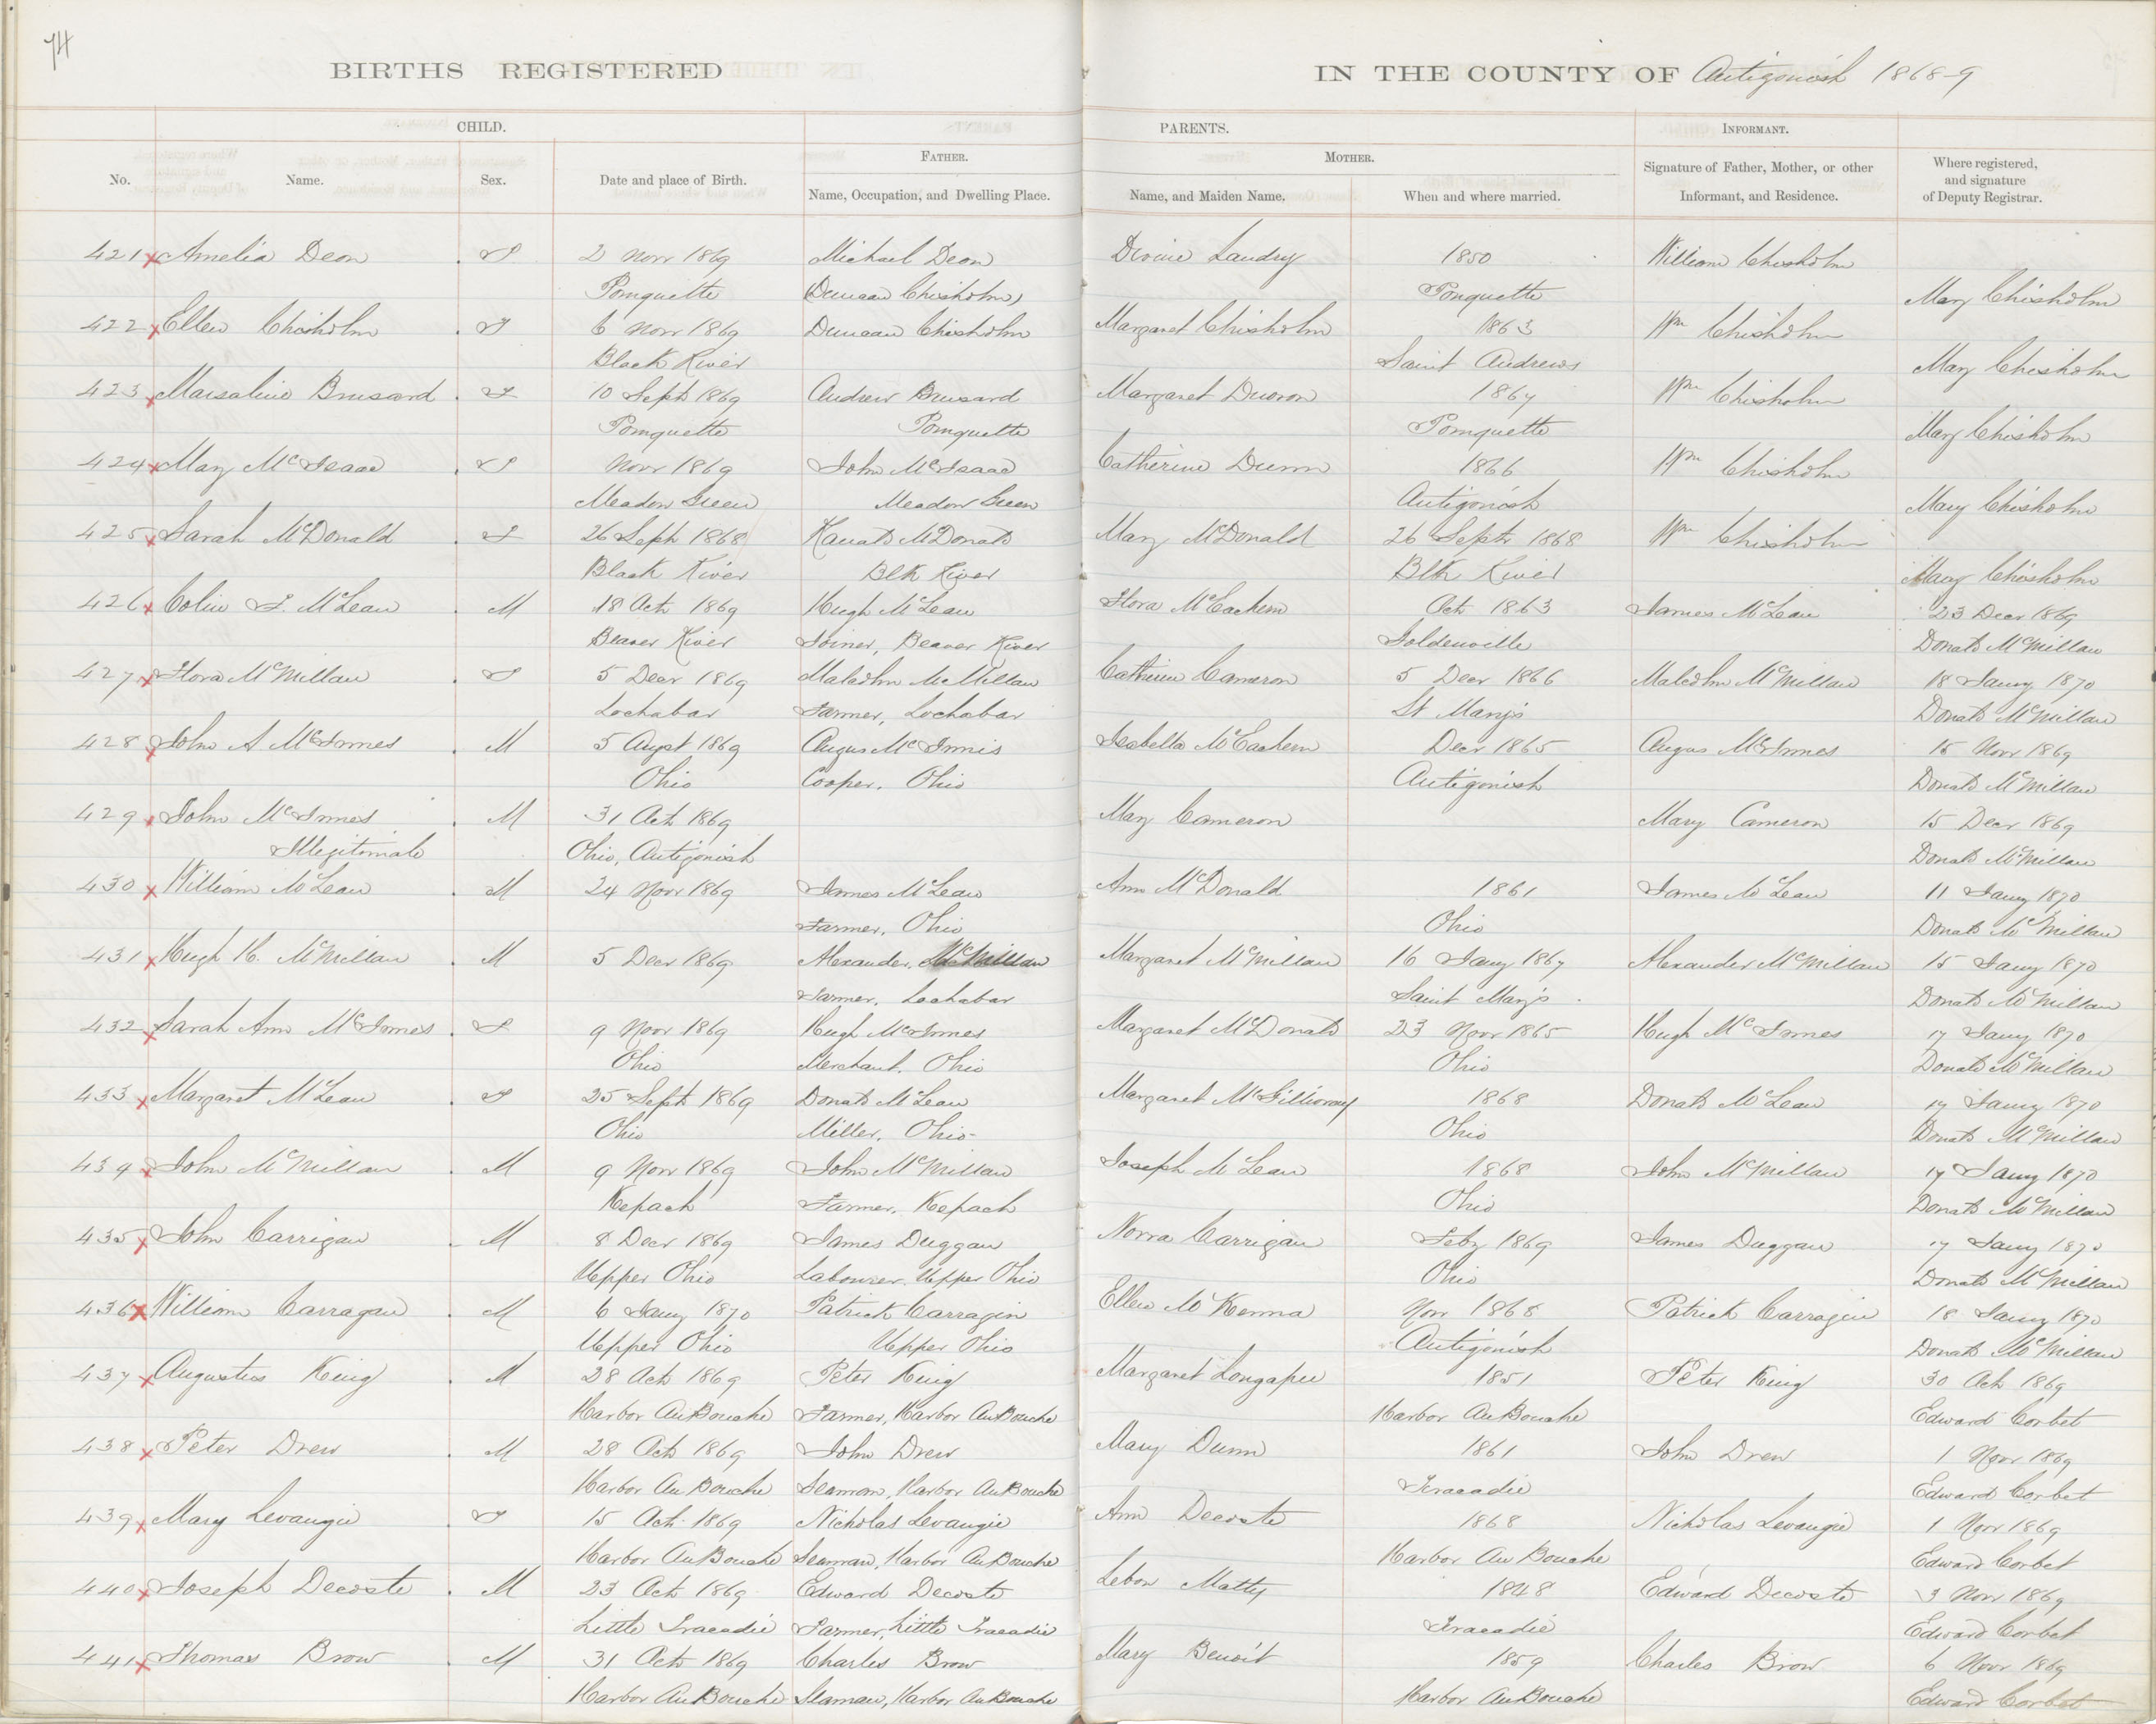 74
BIRTHS REGISTERED IN THE COUNTY OF Antigonish 1868-9
CHILD. PARENTS. INFORMANT.
No. Name. Sex. Date and place of Birth. FATHER. Name, Occupation, and Dwelling Place. MOTHER. Name, and Maiden Name. When and where married. Signature of Father, Mother, or other Informant, and Residence. Where registered, and signature of Deputy Registrar.
421 Amelia Deon F 2 Novr 1869 Michael Deon Divine Landry 1850 William Chisholm
Pomquette (Duncan Chisholm) Ponquette Mary Chisholm
422 Ellen Chisholm F 6 Novr 1869 Duncan Chisholm Margaret Chisholm 1863 Wm Chisholm
Black River Saint Andrews Mary Chisholm
423 Marsalino Brusard F 10 Sept 1869 Andrew Brusard Margaret Duoron 1867 Wm Chisholm
Pomquette Pomquette Pomquette Mary Chisholm
424 Mary McIsaac F Novr 1869 John McIsaac Catherine Dunn 1866 Wm Chisholm
Meadow Green Meadow Green Antigonish Mary Chisholm
425 Sarah McDonald F 26 Sept 1868 McDonald Mary McDonald 26 Septr 1868 Wm Chisholm
Black River Blk River Blk River Mary Chisholm
426 Colin F. McLean M 18 Octr 1869 Hugh McLean Flora McEachern Octr 1863 James McLean 23 Decr 1869
Beaver River Joiner, Beaver River Goldenville Donald McMillan
427 Flora McMillan F 5 Decr 1869 Malcolm McMillan Catherine Cameron 5 Decr 1866 Malcolm McMillan 18 Jany 1870
Lochabar Farmer, Lochabar St Mary's Donald McMillan
428 John A McInnes M 5 Augst 1869 Angus McInnis Isabella McEachern Decr 1865 Angus McInnes 15 Novr 1869
Ohio Cooper, Ohio Antigonish Donald McMillan
429 John McInnes M 31 Octr 1869 Mary Cameron Mary Cameron 15 Decr 1869
Illegitimate Ohio, Antigonish Donald McMillan
430 William McLean M 24 Novr 1869 James McLean Ann McDonald 1861 James McLean 11 Jany 1870
Farmer, Ohio Ohio Donald McMillan
431 Hugh H. McMillan M 5 Decr 1869 Alexander McMillan Margaret McMillan 16 Jany 1867 Alexander McMillan 15 Jany 1870
Farmer, Lochabar Saint Mary's Donald McMillan
432 Sarah Ann McInnes F 9 Novr 1869 Hugh McInnes Margaret McDonald 23 Novr 1865 Hugh McInnes 17 Jany 1870
Ohio Merchant, Ohio Ohio Donald McMillan
433 Margaret McLean F 25 Sept 1869 Donald McLean Margaret McGillivray 1868 Donald McLean 17 Jany 1870
Ohio Miller, Ohio Ohio Donald McMillan
434 John McMillan M 9 Novr 1869 John McMillan Joseph McLean 1868 John McMillan 17 Jany 1870
Kepach Farmer, Kepach Ohio Donald McMillan
435 John Carrigan M 8 Decr 1869 James Duggan Norra Carrigan Feby 1869 James Duggan 17 Jany 1870
Upper Ohio Labourer, Upper Ohio Ohio Donald McMillan
436 William Carragan M 6 Jany 1870 Patrick Carragin Ellen McKenna Novr 1868 Patrick Carragin 18 Jany 1870
Upper Ohio Upper Ohio Antigonish Donald McMillan
437 Augustus King M 28 Octr 1869 Peter King Margaret Longapee 1851 Peter King 30 Oct 1869
Harbor AuBouche Farmer, Harbor AuBouche Harbor AuBouche Edward Corbet
438 Peter Drew M 28 Octr 1869 John Drew Mary Dunn 1861 John Drew 1 Novr 1869
Harbor Au Bouche Seaman, Harbor AuBouche Tracadie Edward Corbet
439 Mary Levangie F 15 Oct 1869 Nicholas Levangie Ann Decoste 1868 Nicholas Levangie 1 Novr 1869
Harbor AuBouche Seaman, Harbor AuBouche Harbor Au Bouche Edward Corbet
440 Joseph Decoste M 23 Octr 1869 Edward Decoste Lebon Matty 1848 Edward Decoste 3 Novr 1869
Little Tracadie Farmer, Little Tracadie Tracadie Edward Corbet
441 Thomas Brow M 31 Octr 1869 Charles Brow Mary Benoit 1859 Charles Brow 6 Novr 1869
Harbor AuBouche Seaman, Harbor AuBouche Harbor AuBouche Edward Corbet